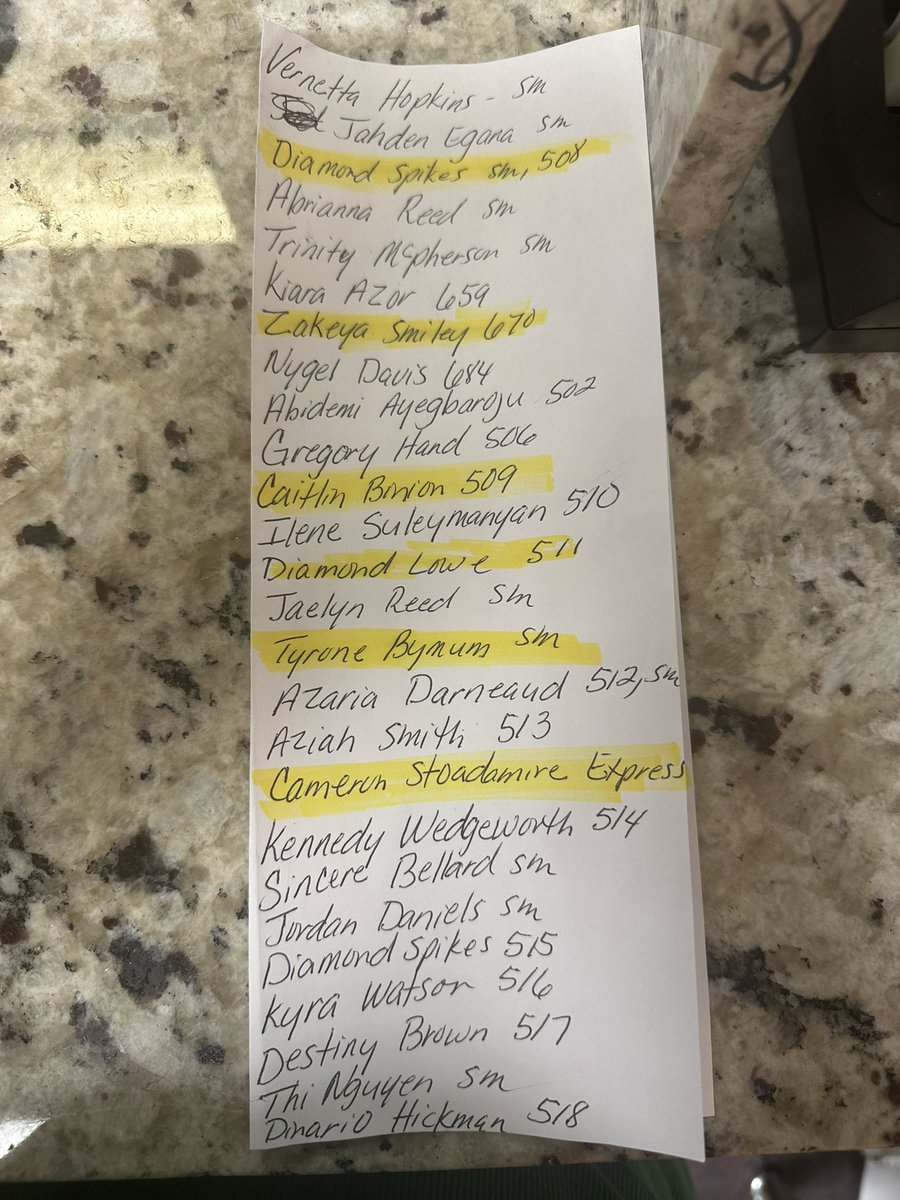 Vernetta Hopkins - sm
Jahden Egana sm
Diamond Spikes sm, 508
Abrianna Reed sm
Trinity McPherson sm
Kiara Azor 659
Zakeya Smiley 670
Nygel Davis 684
Abidemi Ayegbaroju 502
Gregory Hand 506
Caitlin Binion 509
Ilene Suleymanyan 510
Diamond Lowe 511
Jaelyn Reed sm
Tyrone Bymum sm
Azaria Darneaud 512, sm
Aziah Smith 513
Cameron Stoadamire Express
Kennedy Wedgeworth 514
Sincere Bellard sm
Jordan Daniels sm
Diamond Spikes 515
Kyra Watson 516
Destiny Brown 517
Thi Nguyen sm
Dinario Hickman 518